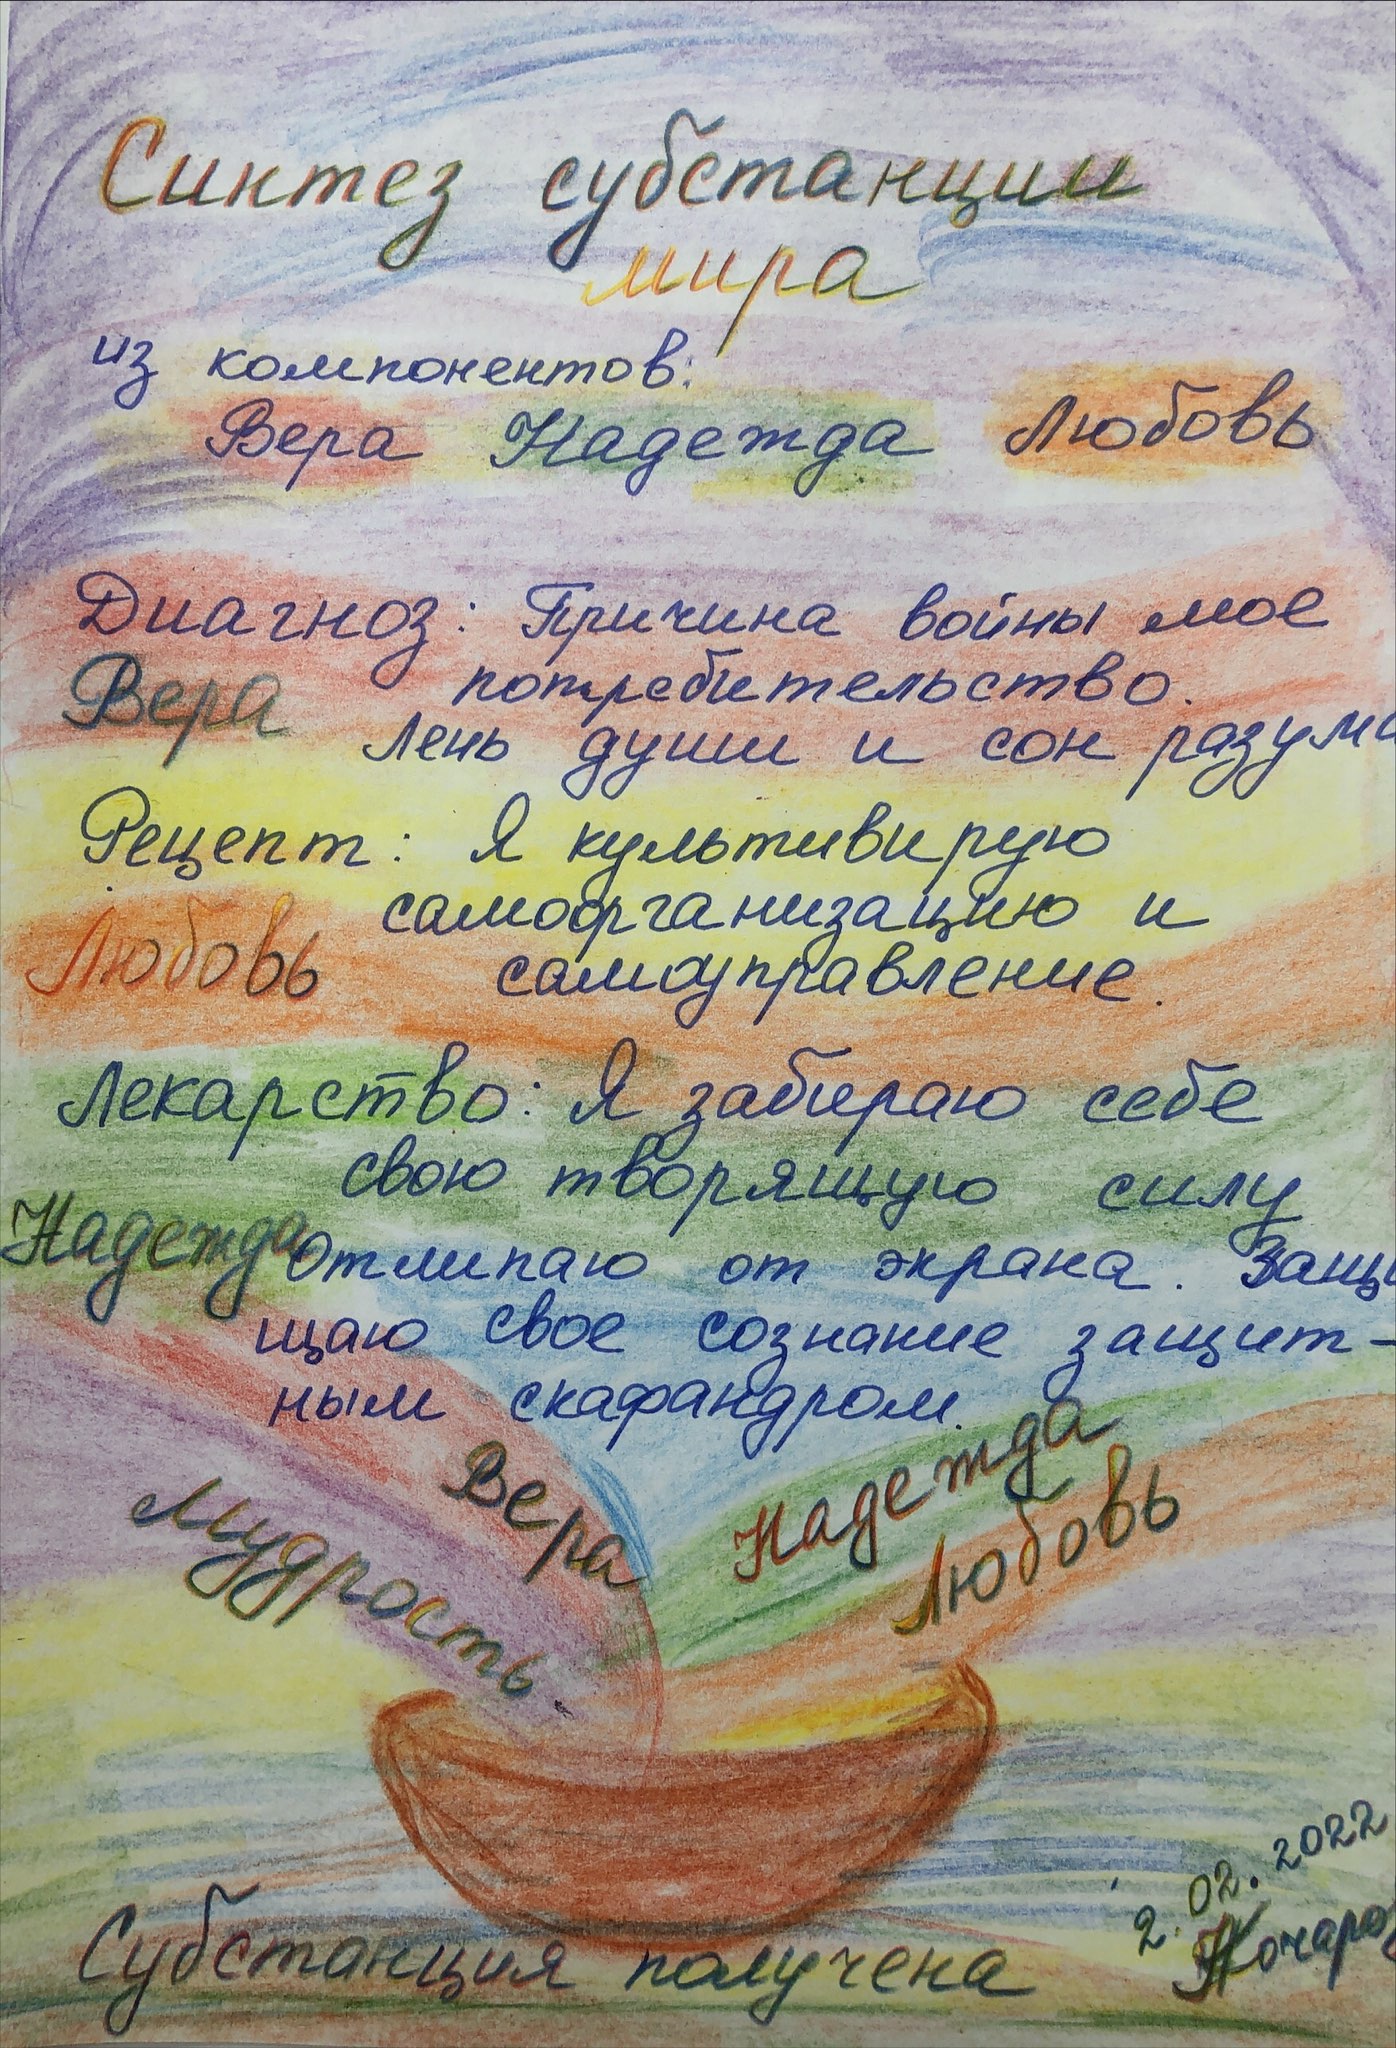 Синтез субстанции
мира
из компонентов:
Вера Надежда Любовь
Диагноз: Причина войны мое
потребительство.
Вера
Лень души и сон разума
Рецепт: Я культивирую
самоорганизацию и
Любовь
самоуправление.
Лекарство: Я забираю себе
свою творящую силу
Надежда
Отлипаю от экрана. Защи
щаю свое сознание защит-
ным скафандром.
Мудрость
Вера
Надежда
Любовь
2.02.2022
Субстанция получена